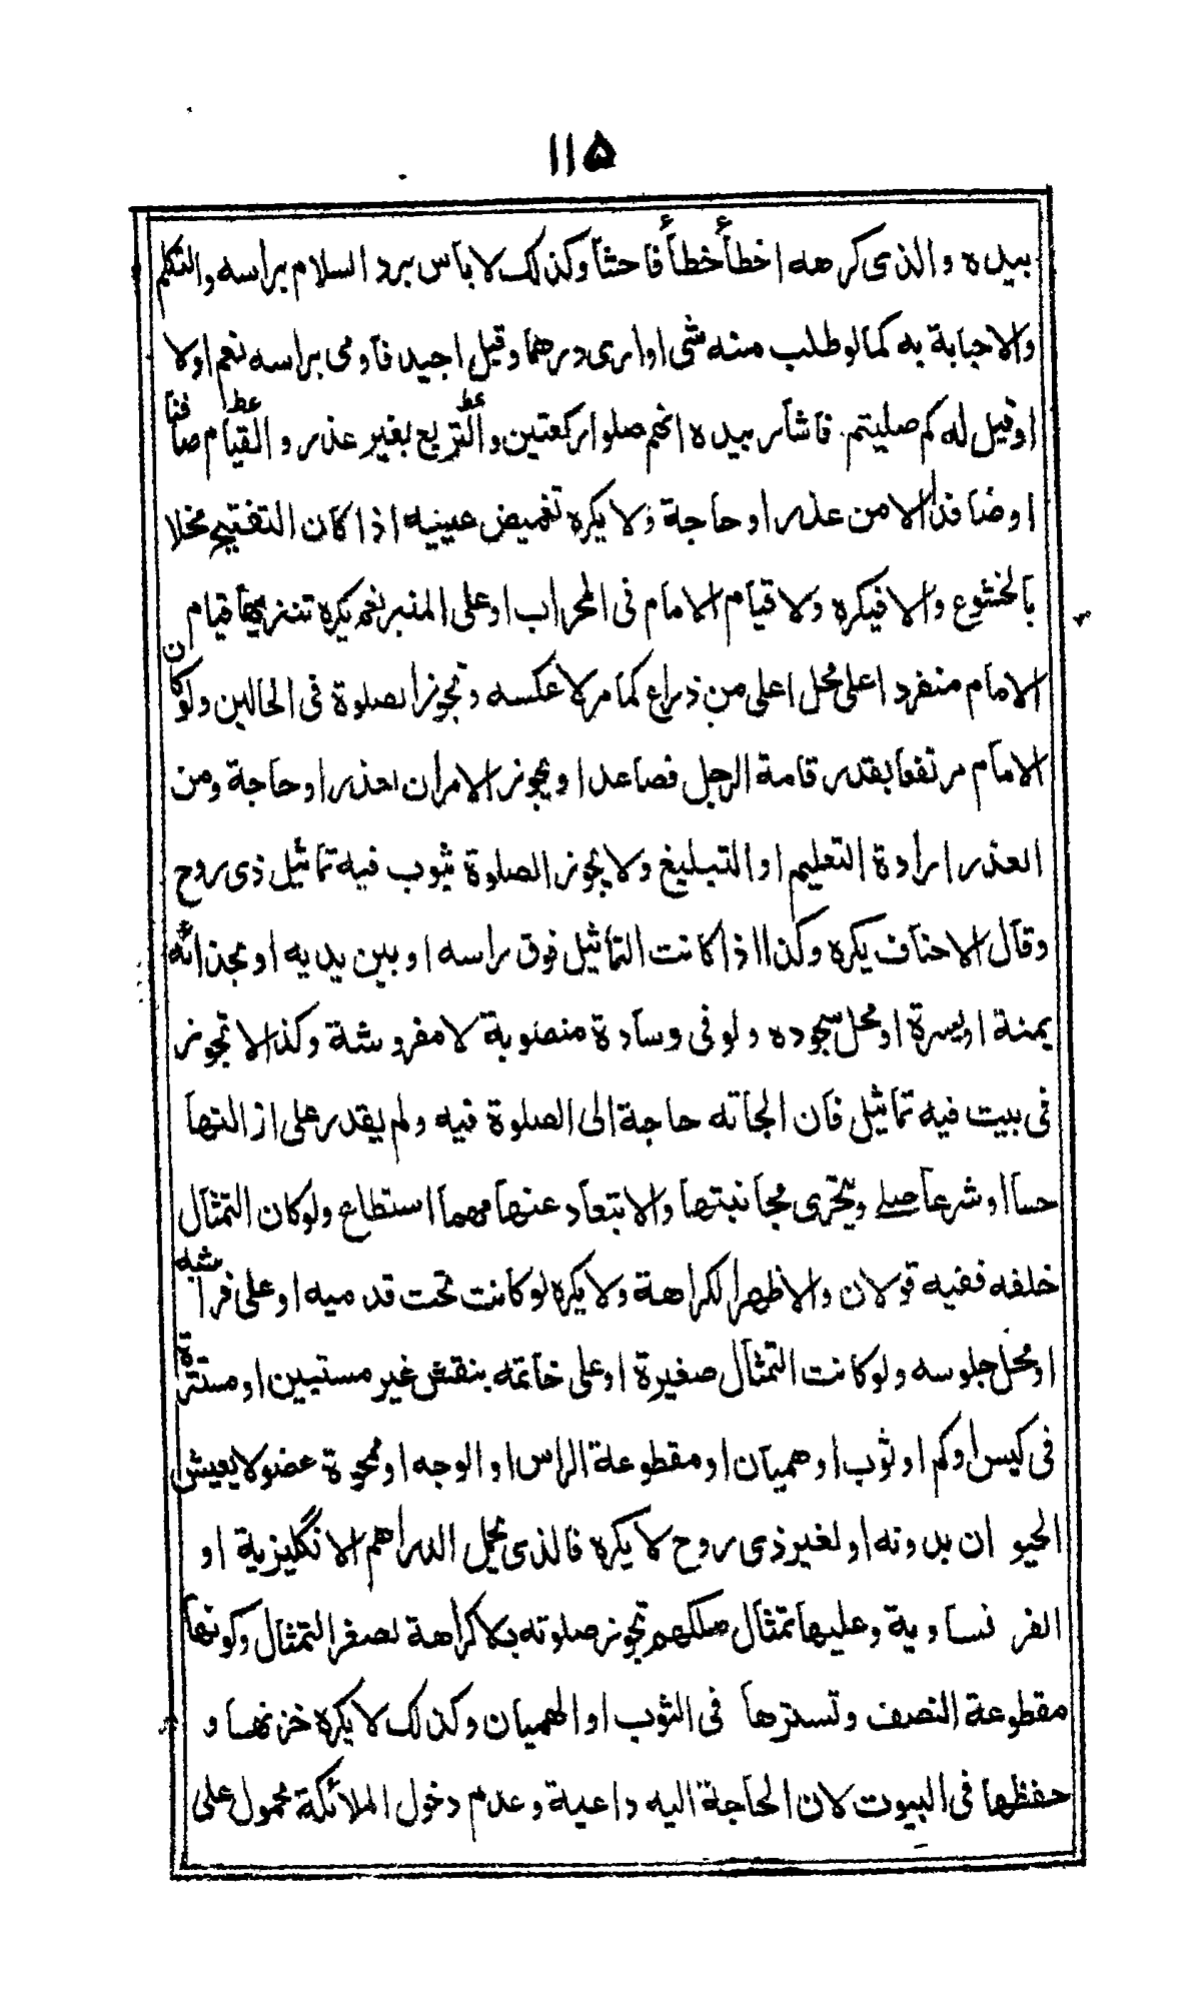 ١١٥
بيده والذى كرهه اخطأ خطأ فاحشا وكذلك لا باس برد السلام براسه والتكلم
والاجابة به كما لو طلب منه شئ او ارى درهما وقيل اجيد فاومى براسه نعم او لا
او قيل له كم صليتم فاشار بيده انهم صلوا ركعتين والتربع بغير عذر والقيام صافنا
او ضافدا لا من عذر او حاجة ولا يكره تغميض عينيه اذا كان التفتيح مخلا
بالخشوع والا فيكره ولا قيام الامام فى المحراب او على المنبر نعم يكره تنزيها قيام
الامام منفردا على محل اعلى من ذراع كما مر لا عكسه وتجوز الصلوة فى الحالين ولو كان
الامام مرتفعا بقدر قامة الرجل فصاعدا ويجوز الامران لعذر او حاجة ومن
العذر ارادة التعليم او التبليغ ولا يجوز الصلوة بثوب فيه تماثيل ذى روح
وقال الاحناف يكره وكذا اذا كانت التماثيل فوق راسه او بين يديه او بحذائه
يمنة او يسرة او محل سجوده ولو فى وسادة منصوبة لا مفروشة وكذا لا تجوز
فى بيت فيه تماثيل فان الجاته حاجة الى الصلوة فيه ولم يقدر على ازالتها
حسا او شرعا صلى ويتحرى مجانبتها والابتعاد عنها مهما استطاع ولو كان التمثال
خلفه ففيه قولان والاظهر الكراهة ولا يكره لو كانت تحت قدميه او على فراشه
او محل جلوسه ولو كانت التمثال صغيرة او على خاتمه بنقش غير مستبين او مستترة
فى كيس او كم او ثوب او هميان او مقطوعة الراس او الوجه او ممحوة عضو لا يعيش
الحيوان بدونه او لغير ذى روح لا يكره فالذى يحمل الدراهم الانگليزية او
الفرنساوية وعليها تمثال ملكهم تجوز صلوته بلا كراهة لصغر التمثال وكونها
مقطوعة النصف وتسترها فى الثوب او الهميان وكذلك لا يكره خزنها و
حفظها فى البيوت لان الحاجة اليه داعية وعدم دخول الملائكة محمول على